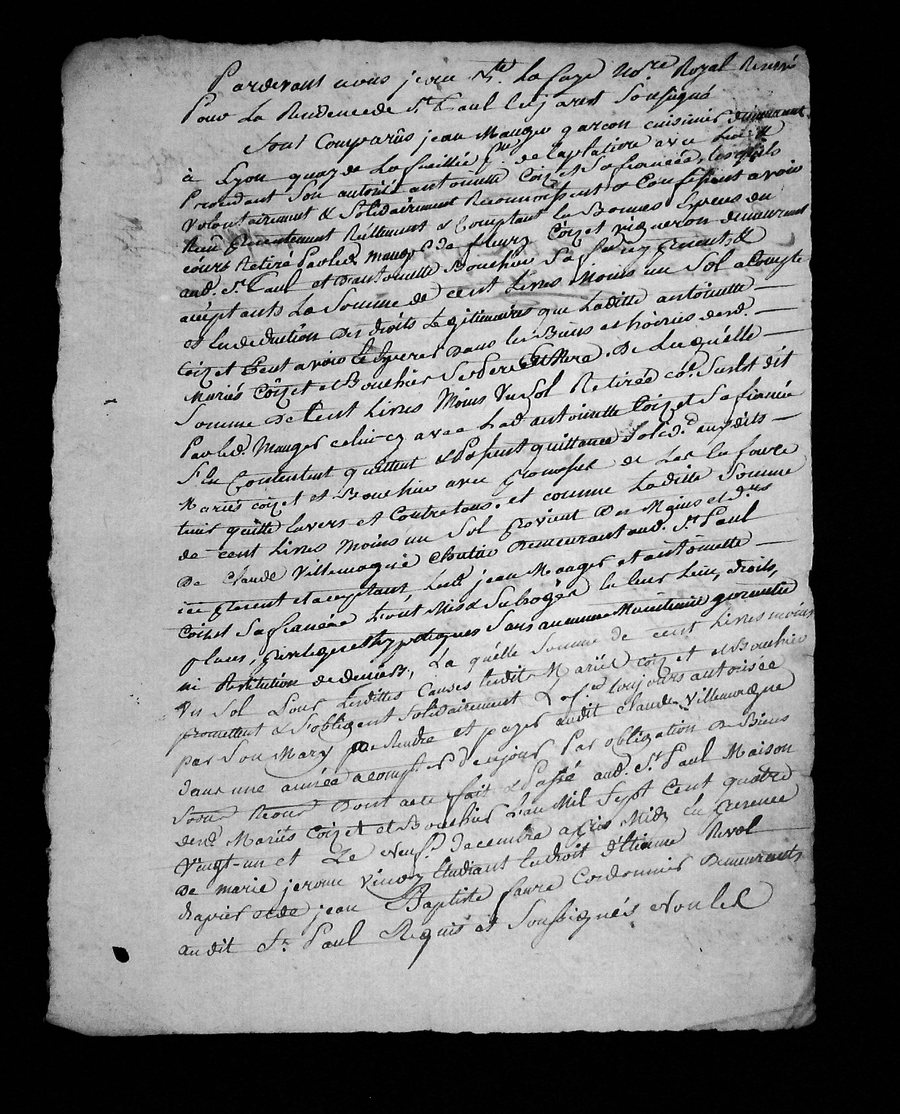 Pardevant nous jean Bte. La Caze Nore. Royal Reservé
Pour La Residence de St. Paul En jarest Soussigné
Sont Comparûs jean Mauger garçon cuisinier demeurant
à Lyon quay de La feuillée de Lad.
Procedant Son autorité antoinette Coizet Sa fiancée, lesquels
Volontairement & Solidairement Reconnoissent & Confessent avoir
Reçu presentement Réellement & Comptant En Bonnes Especes du
cours Retiré Par led. Mauger de fleury Coizet vigneron demeurant
aud. St. Paul et d'antoinette Bouchier Sa femme present, &
aceptants La Somme de cent Livres Moins un Sol a Compte
et En deduction Des droits Legitimaires que Laditte antoinette
Coizet Peut avoir Esperer Dans les Biens et hoiries desd.
Mariés Coizet et Bouchier Ses Pere et Mere. De Laquelle
Somme De Cent Livres Moins Un Sol Retirée co[mme] Sus est dit
Par led. Mauger Celui cy avec Lad. antoinette Coizet Sa fiancée
S'En Contentent quittent & Passent quittance Solide. auxdits
Mariés Coizet et Bouchier avec Promesse de Les En faire
tenir quitte Envers et Contre tous. et comme Laditte Somme
de cent Livres Moins un Sol Provient Des Mains et drs.
De Claude Villemagne Demeurant aud. St. Paul
icy present et aceptant, Led. jean Mauger et antoinette
Coizet Sa fiancée L'ont Mis & Subrogée En Leur Lieu, droits,
place, privilege & hypoteques Sans aucune Maintenue garantie
ni Restitution de deniers, La quelle Somme de cent Livres moins
Un Sol Pour Lesdittes Causes Lesdits Mariés Coizet et Bouchier
promettent & S'obligent Solidairement La fe. toujours autorisée
par Son Mary De Rendre et payer audit Claude Villemagne
Dans une année a compter De ce jour Par obligation de Biens
Sous Renon. Dont acte fait & Passé aud. St. Paul Maison
desd. Mariés Coizet et Bouchier L'an Mil Sept Cent quatre
Vingt-un et Le Neuf Decembre apres Midy En Presence
De marie jerome Etudiant En droit d'Etienne Revol
Drapier et de jean Baptiste faure Cordonnier Demeurants
audit St. Paul Requis et Soussignés Non les